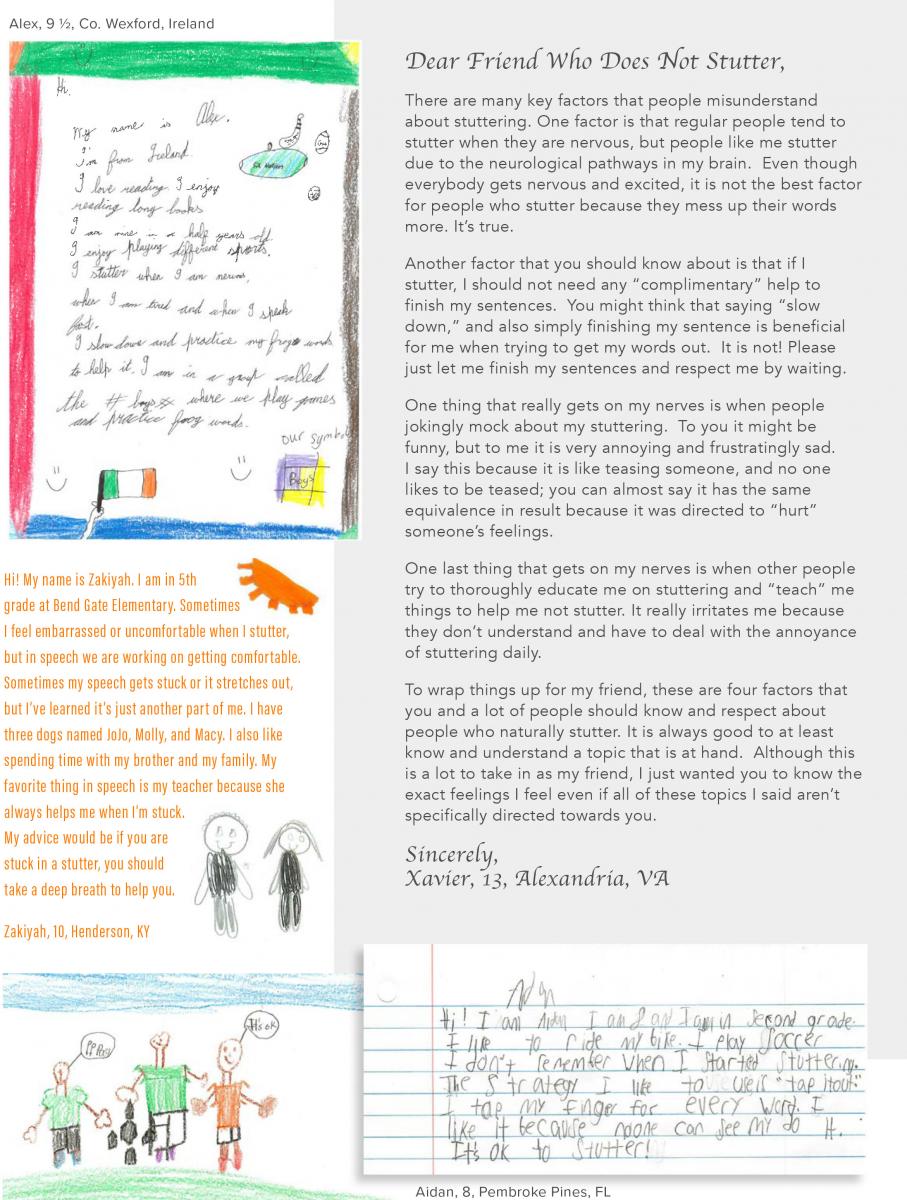 Alex, 9 ½, Co. Wexford, Ireland
Hi.
My name is Alex.
I'm from Ireland.
I love reading. I enjoy
reading long books
I am nine in a half years old.
I enjoy playing different sports.
I stutter when I am nervous,
when I am tired and when I speak
fast.
I slow down and practice my frogy words
to help it. I am in a group called
the # boys where we play games
and practice froggy words.
our symbol
Boys
Hi! My name is Zakiyah. I am in 5th
grade at Bend Gate Elementary. Sometimes
I feel embarrassed or uncomfortable when I stutter,
but in speech we are working on getting comfortable.
Sometimes my speech gets stuck or it stretches out,
but I've learned it's just another part of me. I have
three dogs named JoJo, Molly, and Macy. I also like
spending time with my brother and my family. My
favorite thing in speech is my teacher because she
always helps me when I'm stuck.
My advice would be if you are
stuck in a stutter, you should
take a deep breath to help you.
Zakiyah, 10, Henderson, KY
Dear Friend Who Does Not Stutter,
There are many key factors that people misunderstand
about stuttering. One factor is that regular people tend to
stutter when they are nervous, but people like me stutter
due to the neurological pathways in my brain. Even though
everybody gets nervous and excited, it is not the best factor
for people who stutter because they mess up their words
more. It's true.
Another factor that you should know about is that if I
stutter, I should not need any "complimentary" help to
finish my sentences. You might think that saying "slow
down," and also simply finishing my sentence is beneficial
for me when trying to get my words out. It is not! Please
just let me finish my sentences and respect me by waiting.
One thing that really gets on my nerves is when people
jokingly mock about my stuttering. To you it might be
funny, but to me it is very annoying and frustratingly sad.
I say this because it is like teasing someone, and no one
likes to be teased; you can almost say it has the same
equivalence in result because it was directed to "hurt"
someone's feelings.
One last thing that gets on my nerves is when other people
try to thoroughly educate me on stuttering and "teach" me
things to help me not stutter. It really irritates me because
they don't understand and have to deal with the annoyance
of stuttering daily.
To wrap things up for my friend, these are four factors that
you and a lot of people should know and respect about
people who naturally stutter. It is always good to at least
know and understand a topic that is at hand. Although this
is a lot to take in as my friend, I just wanted you to know the
exact feelings I feel even if all of these topics I said aren't
specifically directed towards you.
Sincerely,
Xavier, 13, Alexandria, VA
It's ok
Hi! I am Aidan I am 8 and I am in second grade.
I like to ride my bike. I play Soccer
I don't remember when I started stuttering.
The strategy I like to use is "tap it out."
I tap my finger for every word. I
like it because noone can see my do it.
It's ok to stutter!
Aidan, 8, Pembroke Pines, FL